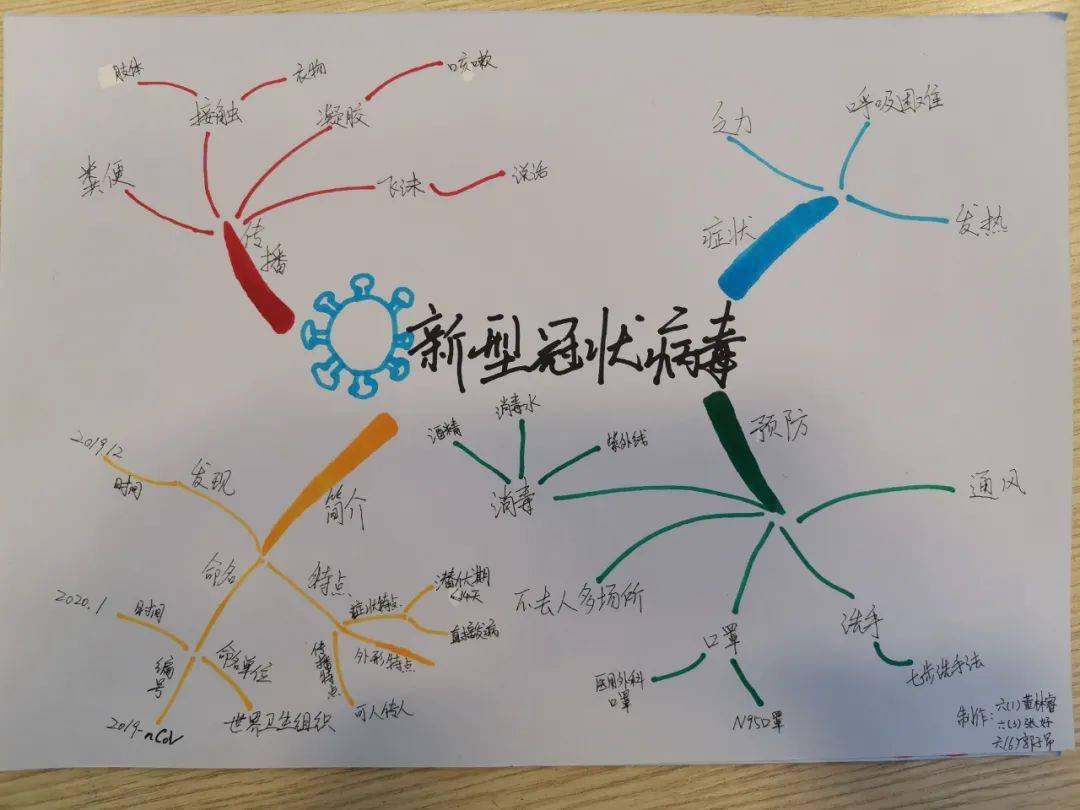 肢体
衣物
咳嗽
接触
凝胶
粪便
飞沫
说话
传播
乏力
呼吸困难
症状
发热
新型冠状病毒
预防
消毒水
酒精
紫外线
消毒
通风
不去人多场所
洗手
七步洗手法
口罩
医用外科
口罩
N95口罩
简介
2019.12
时间
发现
命名
2020.1
时间
编号
2019-nCoV
命名单位
世界卫生组织
特点
症状特点
潜伏期
<14天
直接发病
外形特点
传播特点
可人传人
制作：六(1)黄林睿